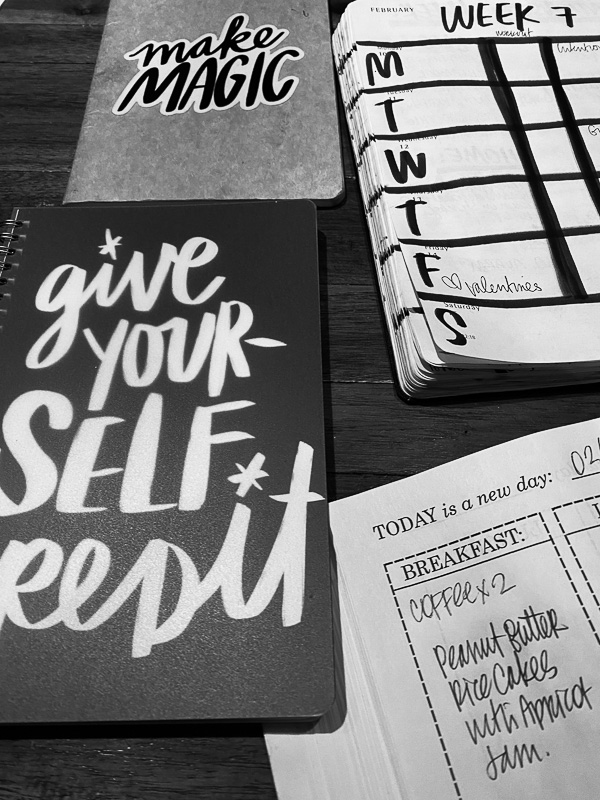 make
MAGIC
FEBRUARY
WEEK 7
workout
Intention
M
T
Wednesday
12
W
T
Friday
F
♡ valentines
Saturday
S
give
YOUR-
SELF
redit
TODAY is a new day: 02
BREAKFAST:
COFFEE x 2
Peanut Butter
Rice Cakes
with Apricot
Jam.